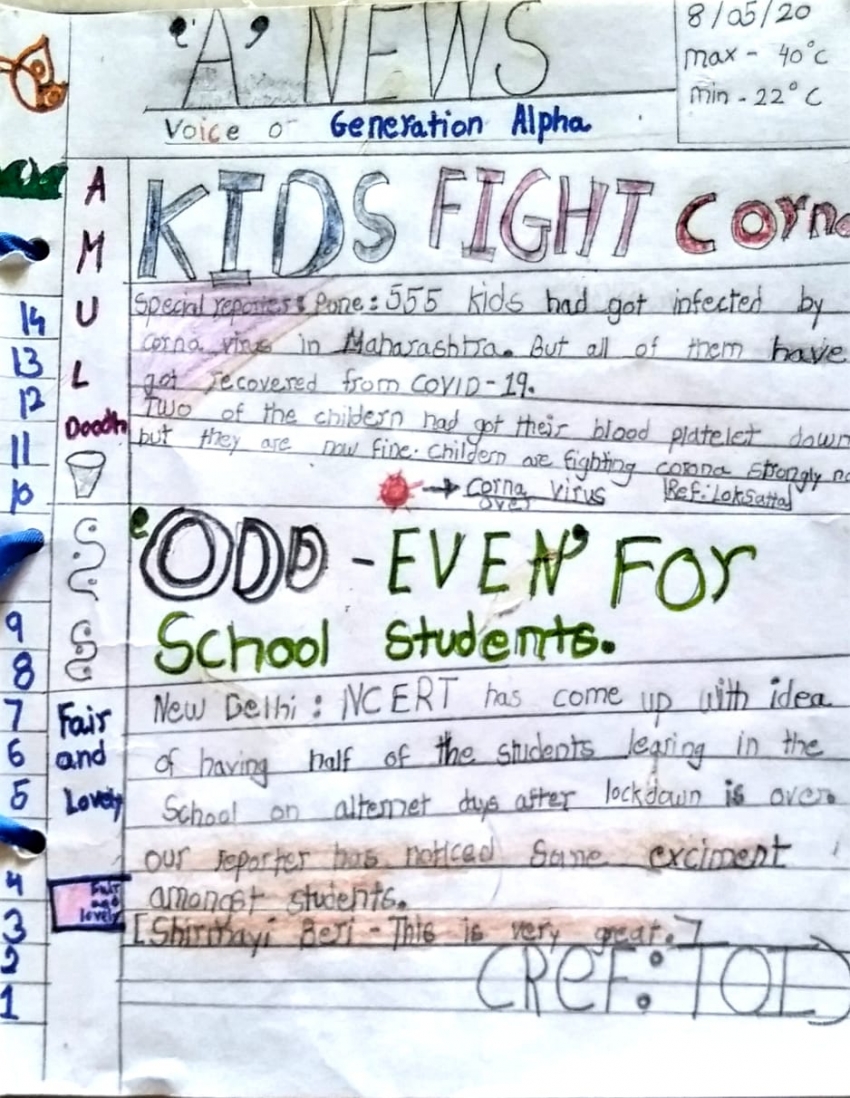 'A' NEWS
8/05/20
max - 40°C
min - 22°C
Voice o Generation Alpha
AMUL
Doodh
KIDS FIGHT Corna
Special reporter: Pune: 555 kids had got infected by
corna virus in Maharashtra. But all of them have
got recovered from COVID-19.
Two of the childern had got their blood platelet down
but they are now fine. childern are fighting corona strongly
→ corna virus
over
[Ref: Loksatta]
'ODD - EVEN' For
School Students.
New Delhi: NCERT has come up with idea
of having half of the students learing in the
School on alternet days after lockdown is over.
our reporter has noticed Some exciment
amongst students.
[Shirmayi Beri - This is very great.]
(Ref: TOI)
Fair
and
Lovely
Fair
and
lovely
14
13
12
11
10
9
8
7
6
5
4
3
2
1